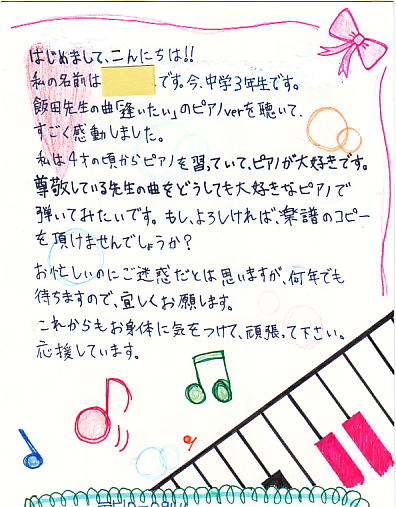 はじめまして、こんにちは!!
私の名前は です。今、中学3年生です。
飯田先生の曲「逢いたい」のピアノverを聴いて、
すごく感動しました。
私は4才の頃からピアノを習っていて、ピアノが大好きです。
尊敬している先生の曲をどうしても大好きなピアノで
弾いてみたいです。もし、よろしければ、楽譜のコピー
を頂けませんでしょうか?
お忙しいのにご迷惑だとは思いますが、何年でも
待ちますので、宜しくお願します。
これからもお身体に気をつけて、頑張って下さい。
応援しています。